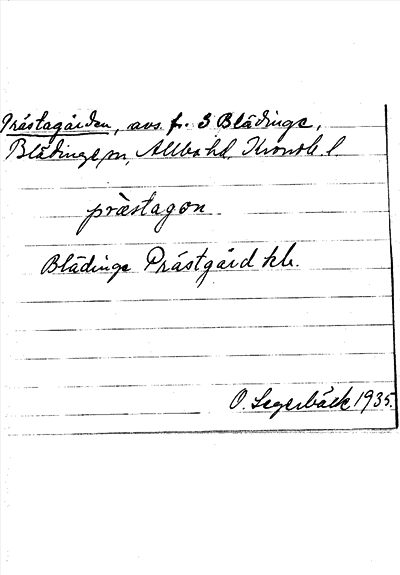 Prästagården, avs. fr. 3 Blädinge,
Blädinge sn, Allbo hd, Kronob. l.
præstagon
Blädinge Prästgård kb.
O. Segerbäck 1935.